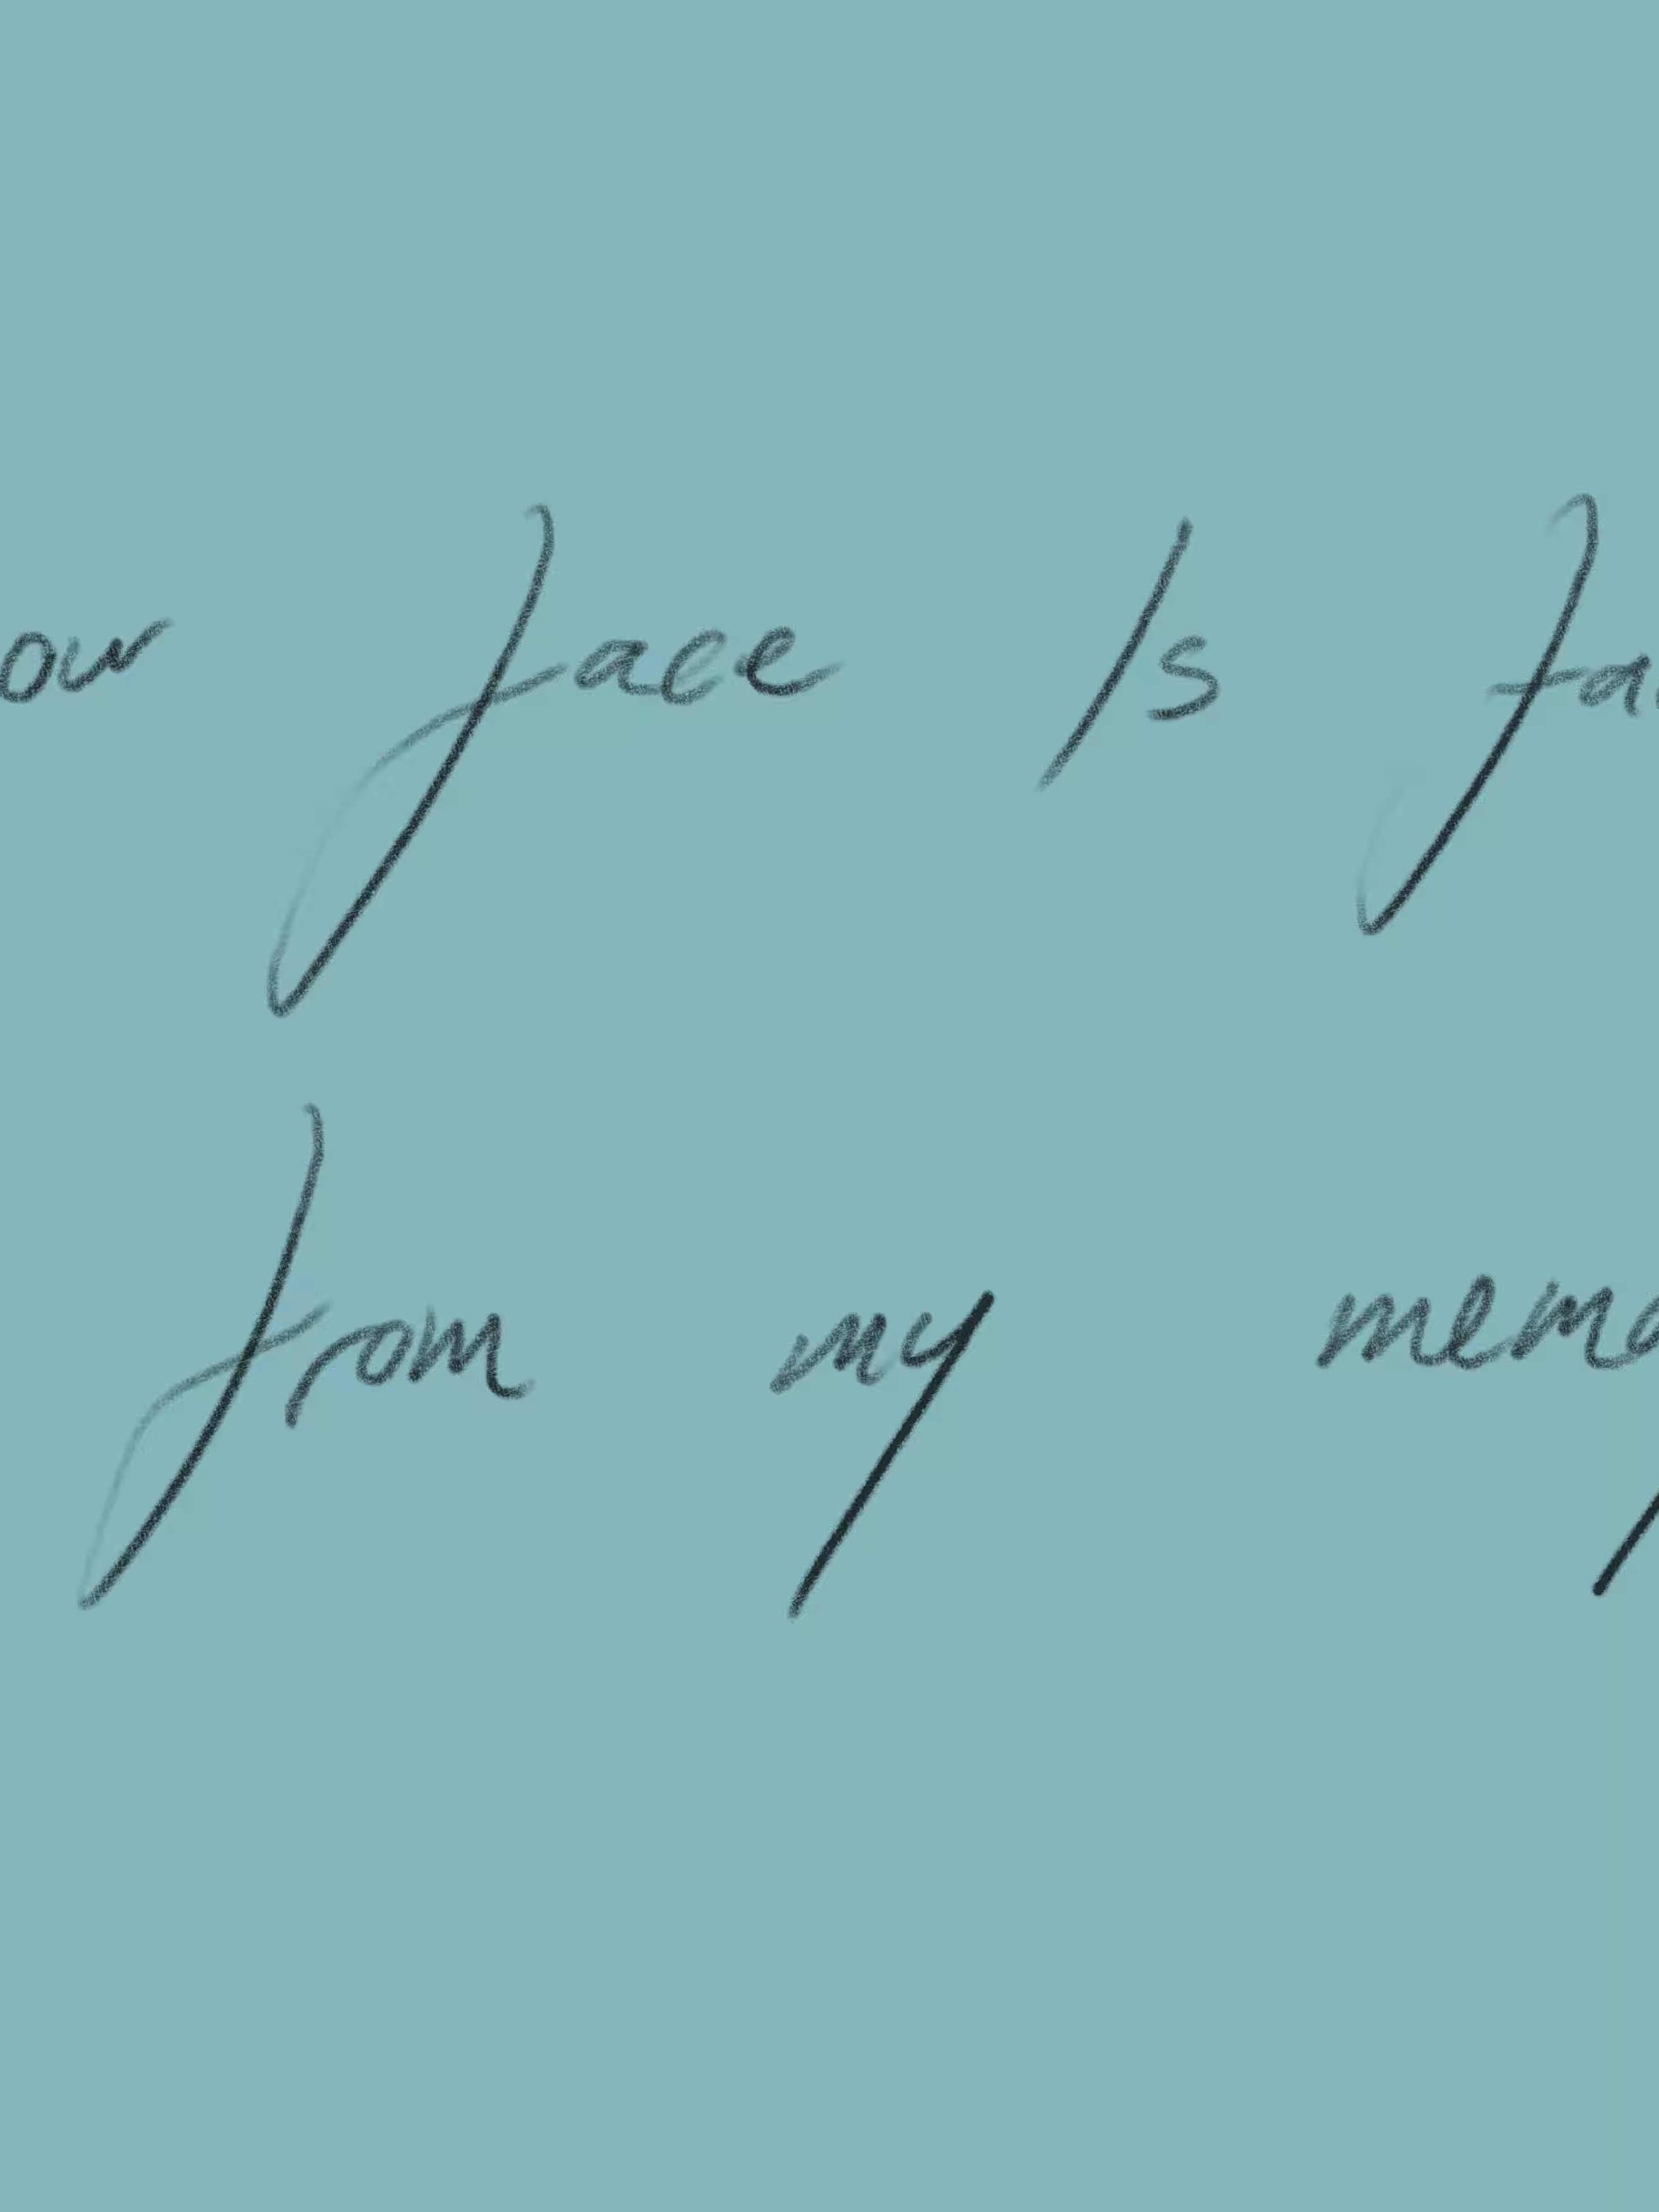 our face is fa
from my memo